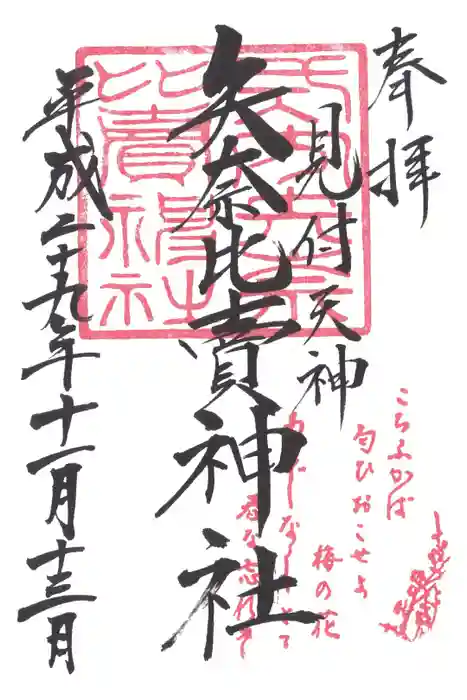 奉拝
見付天神
矢奈比賣神社
平成二十九年十一月十三日
こちふかば
匂ひおこせよ
梅の花
あるじなしとて
春な忘れそ